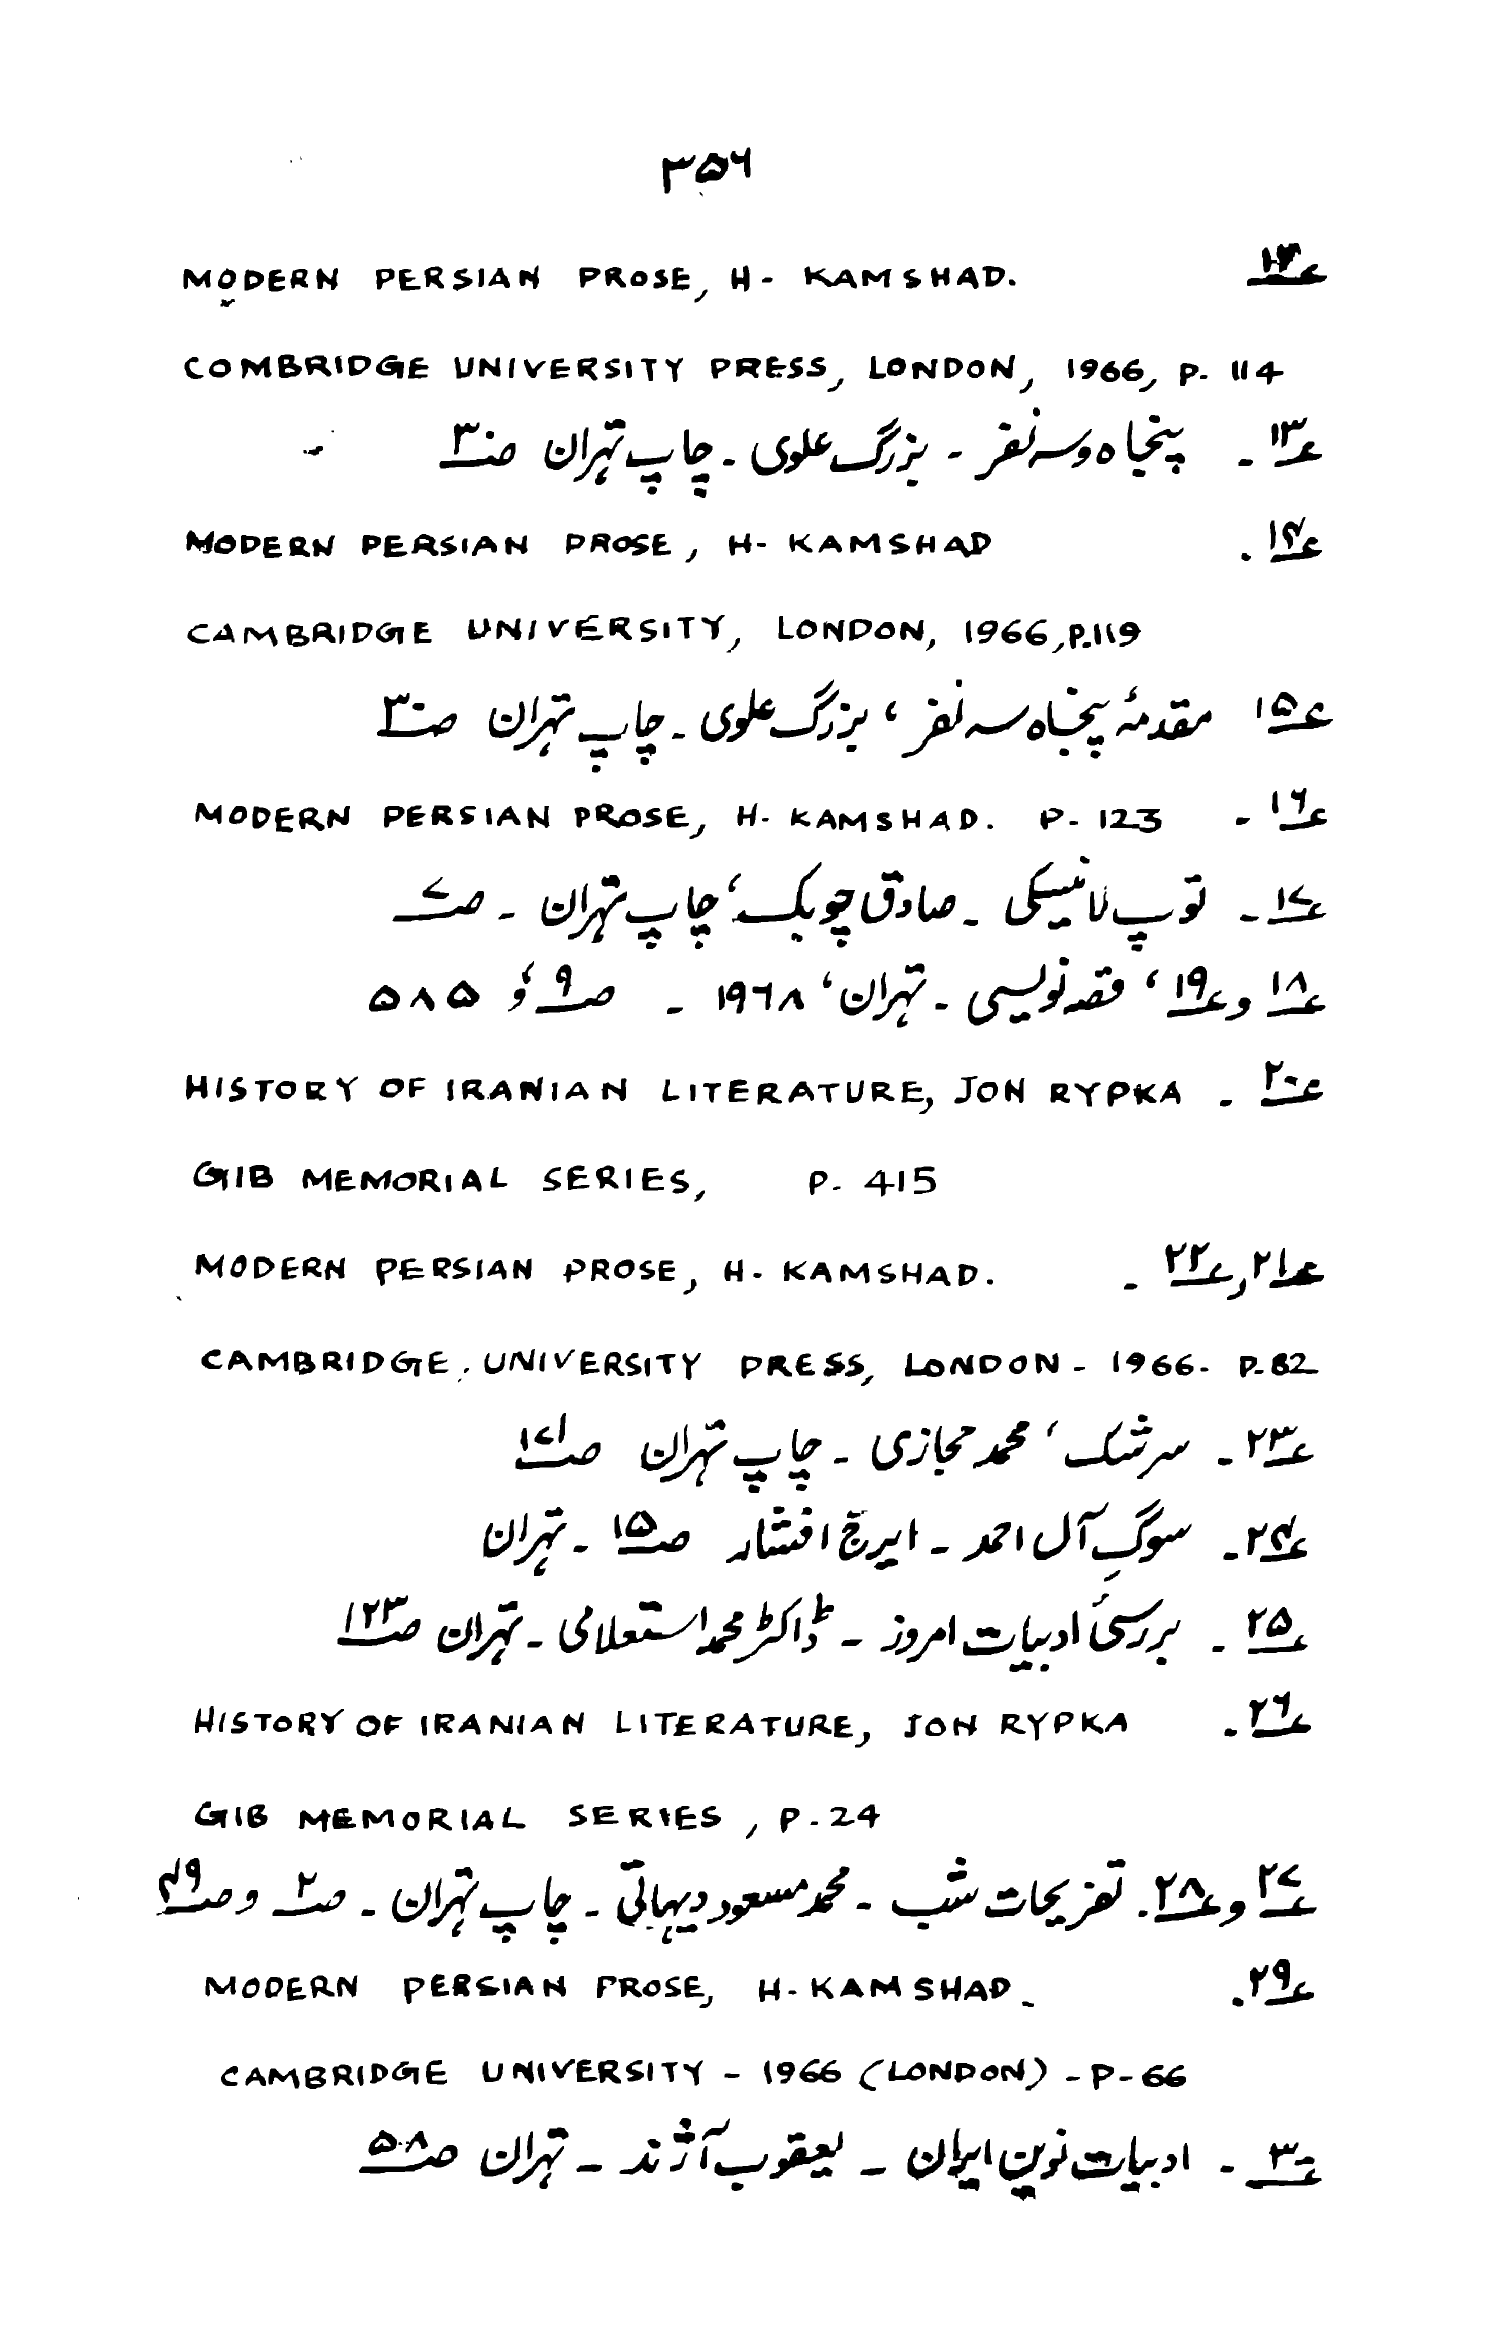 ۳۵۶
MODERN PERSIAN PROSE, H- KAMSHAD. ؏
COMBRIDGE UNIVERSITY PRESS, LONDON, 1966, P. 114
؏۱۳ ۔ پنجاہ و سہ نفر ۔ بزرگ علوی ۔ چاپ تہران ص۳۰
MODERN PERSIAN PROSE, H- KAMSHAD ؏۱۴ .
CAMBRIDGE UNIVERSITY, LONDON, 1966, P.119
؏۱۵ مقدمۂ پنجاہ سہ نفر، بزرگ علوی ۔ چاپ تہران ص۳۰
MODERN PERSIAN PROSE, H- KAMSHAD. P- 123 ؏۱۶ ۔
؏۱۷ ۔ توپ لاستیکی ۔ صادق چوبک، چاپ تہران ۔ ص۷
؏۱۸ و ؏۱۹، قصہ نویسی ۔ تہران، ۱۹۶۸ ۔ ص۹ و ۵۸۵
HISTORY OF IRANIAN LITERATURE, JON RYPKA ؏۲۰ ۔
GIB MEMORIAL SERIES, P- 415
MODERN PERSIAN PROSE, H- KAMSHAD. ؏۲۱ و ؏۲۲ ۔
CAMBRIDGE. UNIVERSITY PRESS, LONDON - 1966- P-82
؏۲۳ ۔ سرشک، محمد حجازی ۔ چاپ تہران ص۱۷۱
؏۲۴ ۔ سوگِ آل احمد ۔ ایرج افشار ص۱۵ ۔ تہران
؏۲۵ ۔ بررسیٔ ادبیات امروز ۔ ڈاکٹر محمد استعلامی ۔ تہران ص۱۲۳
HISTORY OF IRANIAN LITERATURE, JON RYPKA ؏۲۶ ۔
GIB MEMORIAL SERIES, P-24
؏۲۷ و ؏۲۸ ۔ تفریحات شب ۔ محمد مسعود دیہاتی ۔ چاپ تہران ۔ ص۲ و ص۴۹
MODERN PERSIAN PROSE, H- KAMSHAD - ؏۲۹ .
CAMBRIDGE UNIVERSITY - 1966 (LONDON) - P-66
؏۳۰ ۔ ادبیات نوین ایران ۔ یعقوب آژند ۔ تہران ص۵۰۸